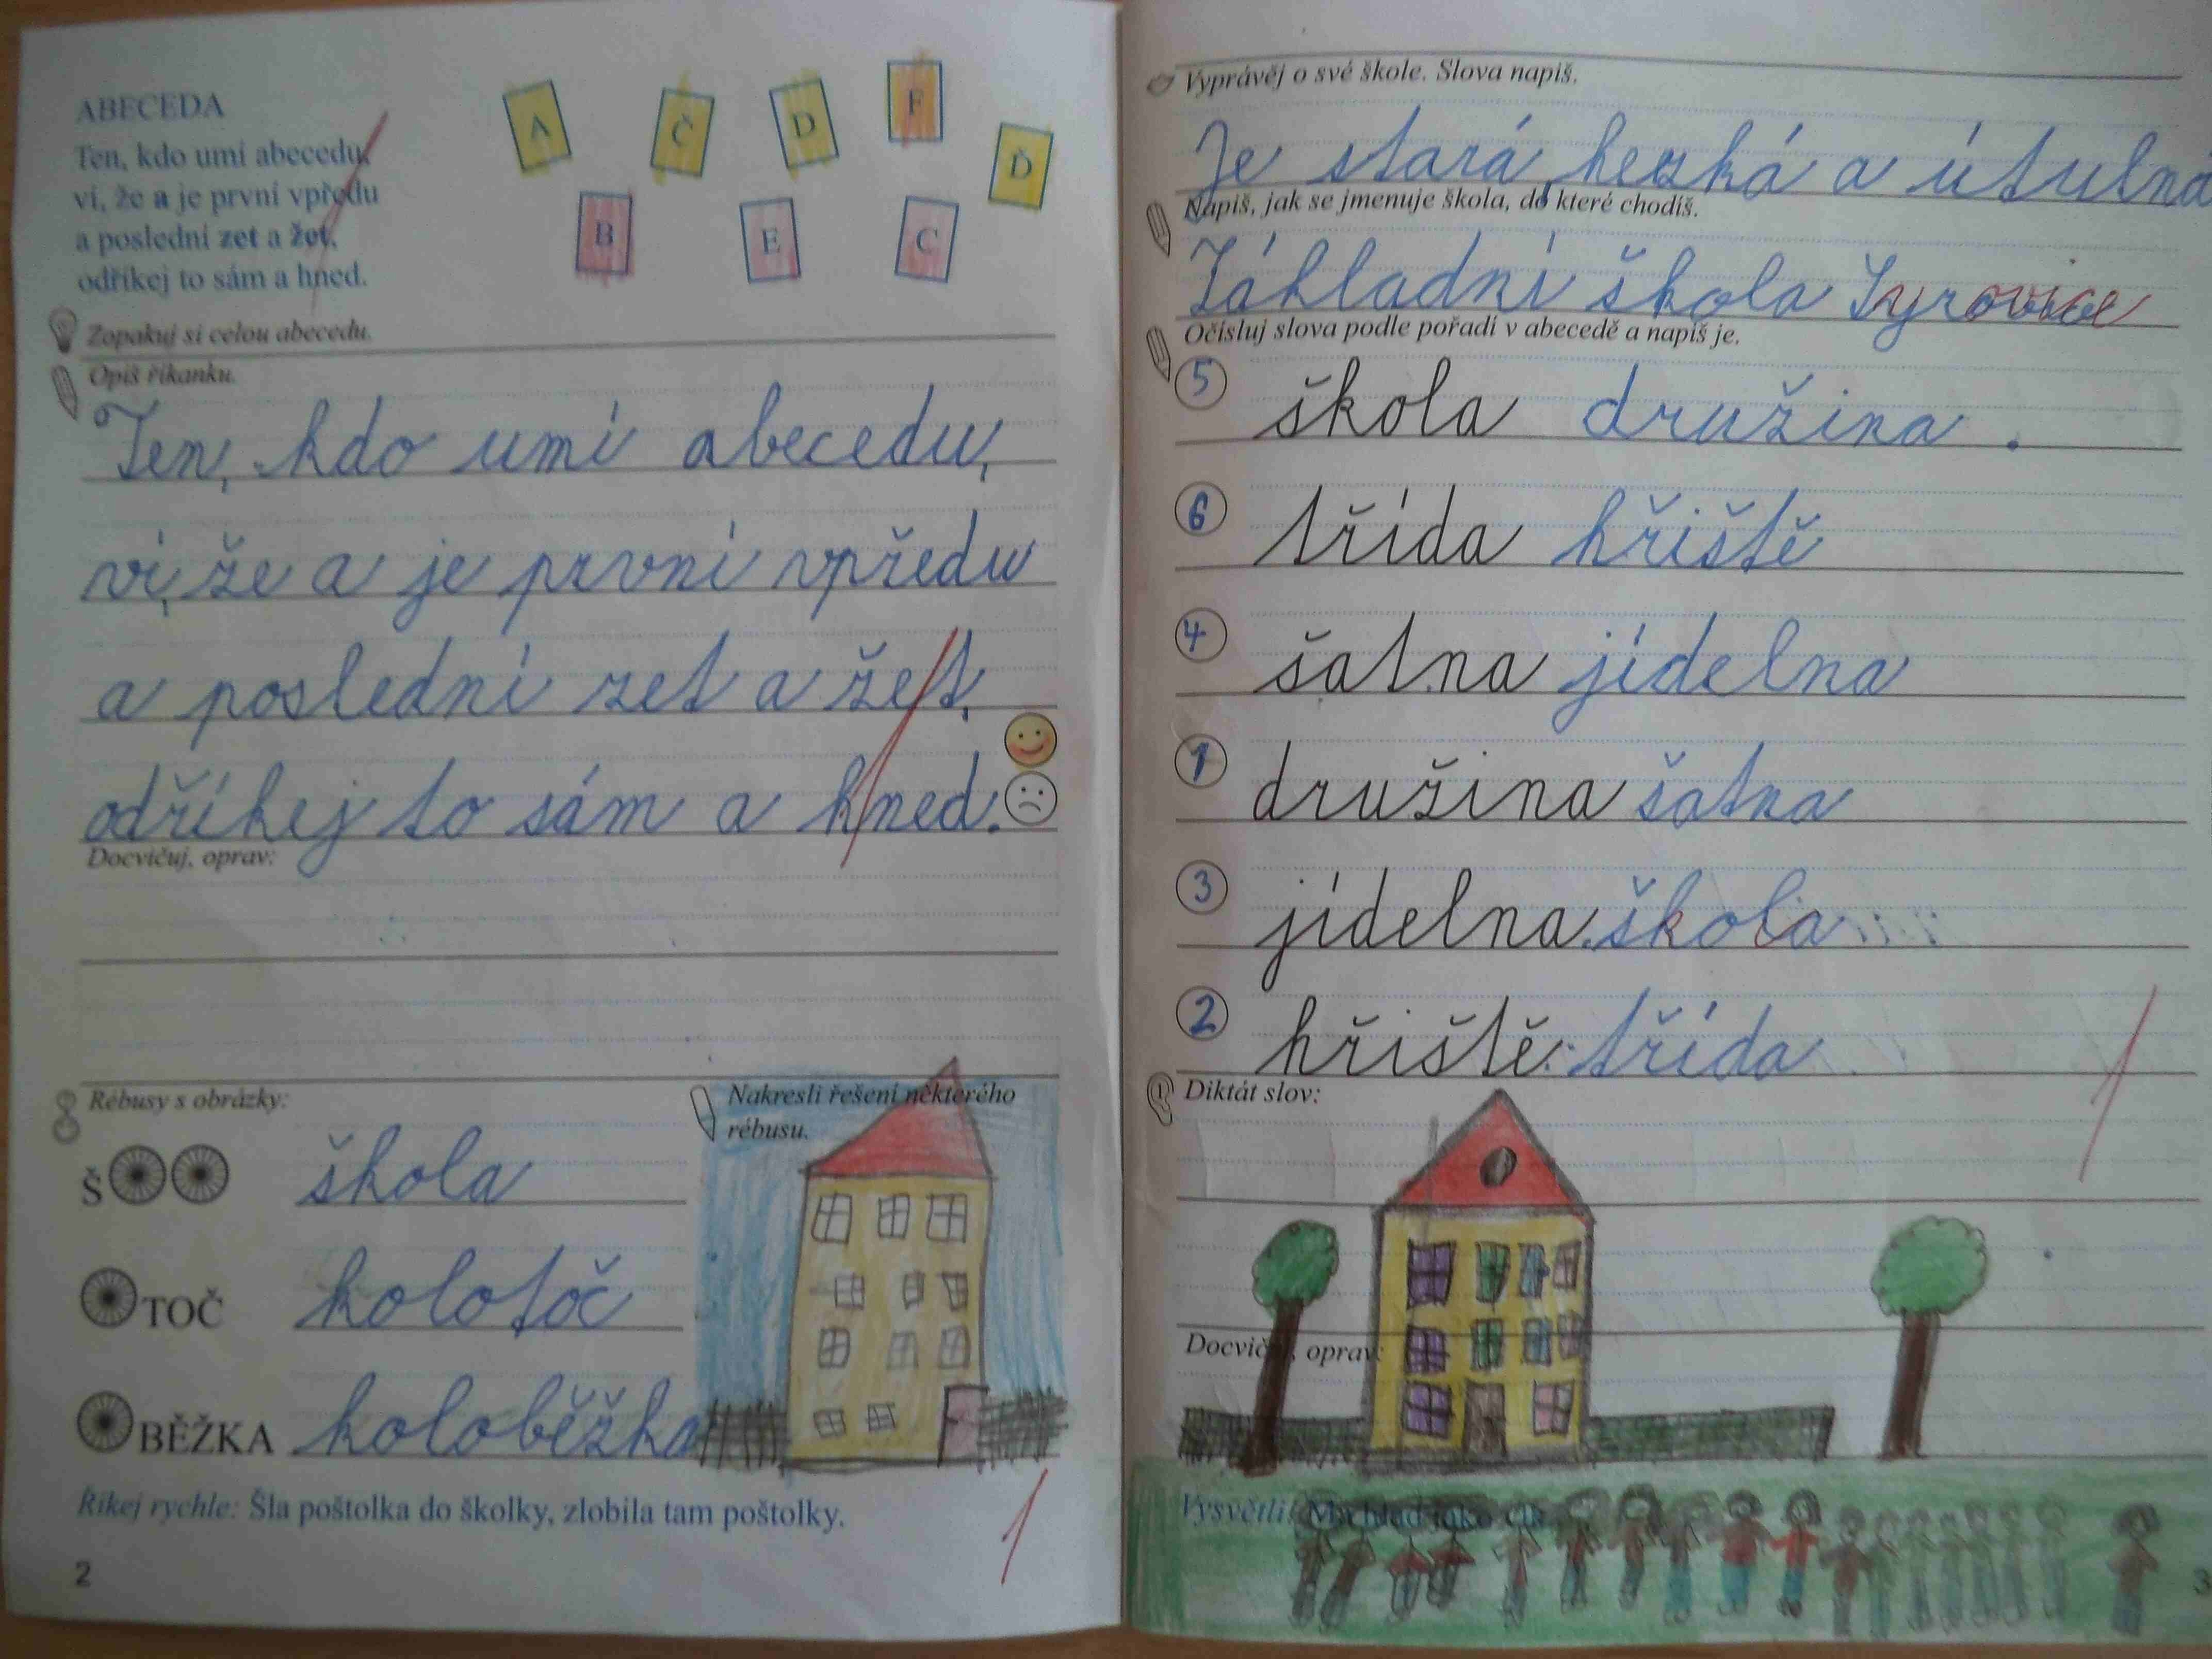 ABECEDA
Ten, kdo umí abecedu,
ví, že a je první vpředu
a poslední zet a žet,
odříkej to sám a hned.
A Č D F
Ď
B E C
Zopakuj si celou abecedu.
Opiš říkanku.
Ten, kdo umí abecedu,
ví, že a je první vpředu
a poslední zet a žet,
odříkej to sám a hned.
Docvičuj, oprav:
Rébusy s obrázky:
Š
škola
TOČ
kolotoč
BĚŽKA
koloběžka
Nakresli řešení některého
rébusu.
Říkej rychle: Šla poštolka do školky, zlobila tam poštolky.
1
2
Vyprávěj o své škole. Slova napiš.
Je stará, hezká a útulná
Napiš, jak se jmenuje škola, do které chodíš.
Základní škola Syrovice
Očísluj slova podle pořadí v abecedě a napiš je.
5 škola družina .
6 třída hřiště
4 šatna jídelna
1 družina šatna
3 jídelna škola
2 hřiště třída
1
Diktát slov:
Docvičuj, oprav:
Vysvětli:
3